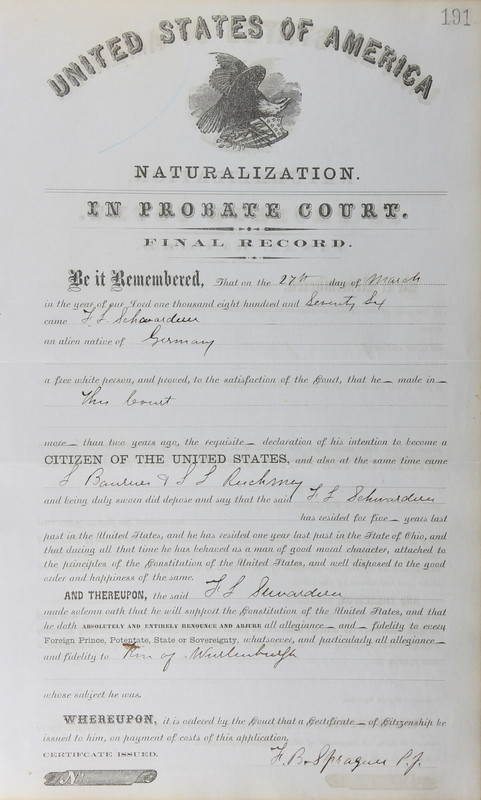 191
UNITED STATES OF AMERICA
NATURALIZATION.
IN PROBATE COURT.
FINAL RECORD.
Be it Remembered, That on the 27th day of March
in the year of our Lord one thousand eight hundred and Seventy Six
came F. L. Schwarderer
an alien native of Germany
a free white person, and proved, to the satisfaction of the Court, that he made in
This Court
more than two years ago, the requisite declaration of his intention to become a
CITIZEN OF THE UNITED STATES, and also at the same time came
& S L
and being duly sworn did depose and say that the said F L Schwarderer
has resided for five years last
past in the United States, and he has resided one year last past in the State of Ohio, and
that during all that time he has behaved as a man of good moral character, attached to
the principles of the Constitution of the United States, and well disposed to the good
order and happiness of the same.
AND THEREUPON, the said F L
made solemn oath that he will support the Constitution of the United States, and that
he doth ABSOLUTELY AND ENTIRELY RENOUNCE AND ABJURE all allegiance and fidelity to every
Foreign Prince, Potentate, State or Sovereignty, whatsoever, and particularly all allegiance
and fidelity to of Wurtenburgh
whose subject he was.
WHEREUPON, it is ordered by the Court that a Certificate of Citizenship be
issued to him, on payment of costs of this application.
CERTIFCATE ISSUED.
F. B. Sprague P. J.
No